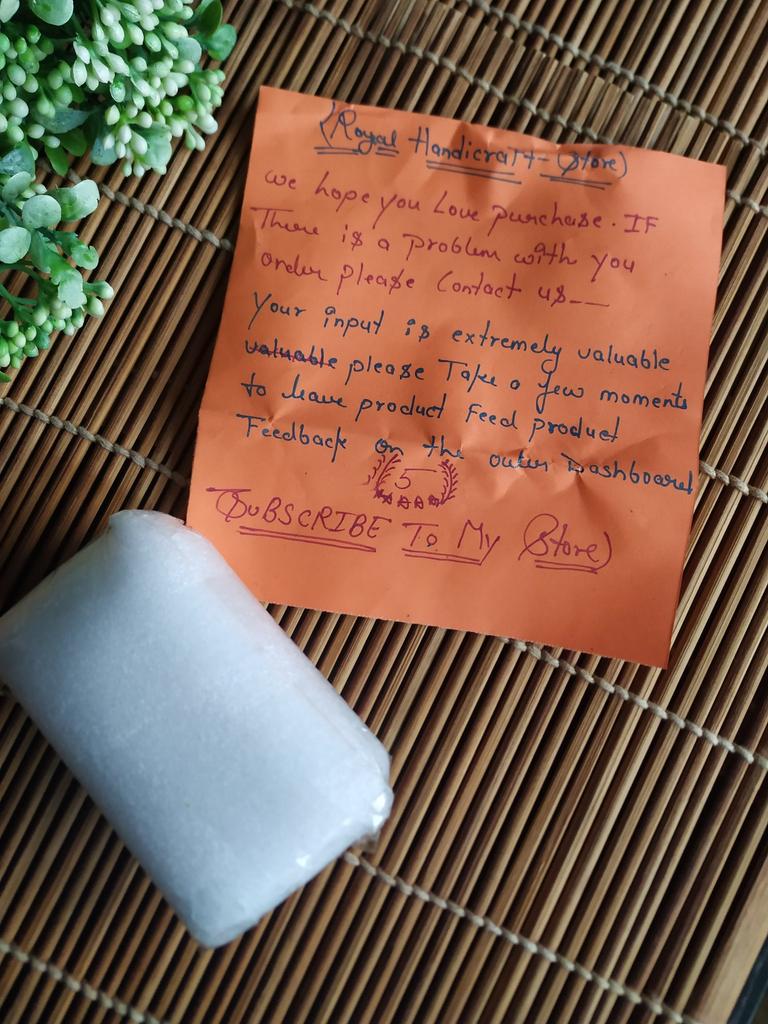 (Royal Handicraft-(Store)
we hope you Love purchase. IF
There is a problem with you
order please Contact us__
Your input is extremely valuable
valuable please Take a few moments
to leave product Feed product
Feedback on the outer Dashboard
5
(SUBSCRIBE To My (Store)